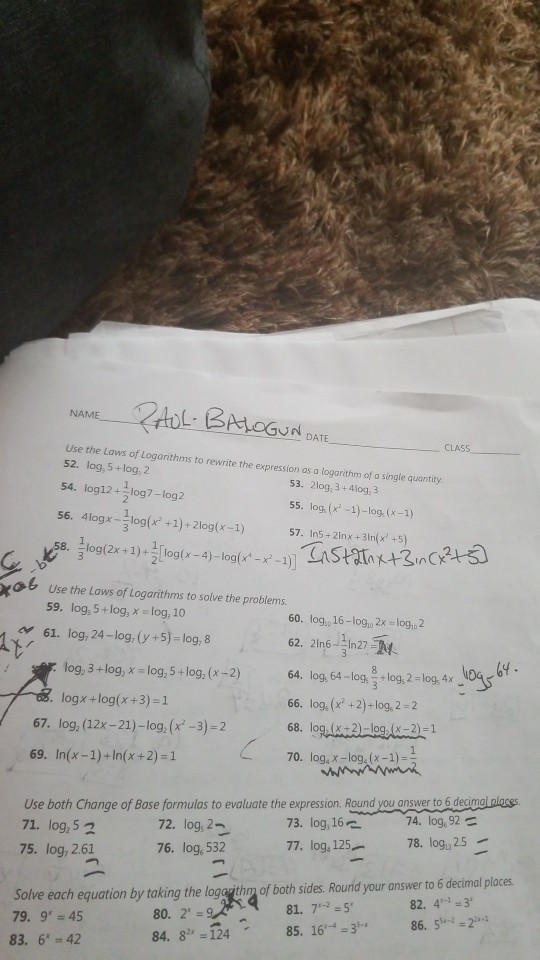 NAME PAUL-BALOGUN DATE CLASS
Use the Laws of Logarithms to rewrite the expression as a logarithm of a single quantity.
52. log₃ 5 + log₃ 2 53. 2log₇ 3 + 4log₇ 3
54. log12 + 1/2 log7 – log2 55. log₅ (x² – 1) – log₅ (x – 1)
56. 4logx – 1/3 log(x² + 1) + 2log(x – 1) 57. ln5 + 2lnx + 3ln(x² + 5)
58. 1/3 log(2x + 1) + 1/2 [log(x – 4) – log(x⁴ – x² – 1)] In5+2Inx+3In(x²+5)
Use the Laws of Logarithms to solve the problems.
59. log₃ 5 + log₃ x = log₃ 10 60. log₁₀ 16 – log₁₀ 2x = log₁₀ 2
61. log₇ 24 – log₇ (y + 5) = log₇ 8 62. 2ln6 – 1/3 ln27 =
log₂ 3 + log₂ x = log₂ 5 + log₂ (x – 2) 64. log₅ 64 – log₅ 8/3 + log₅ 2 = log₅ 4x log₅ 64.
65. logx + log(x + 3) = 1 66. log₆ (x² + 2) + log₆ 2 = 2
67. log₂ (12x – 21) – log₂ (x² – 3) = 2 68. log₂ (x + 2) – log₂ (x – 2) = 1
69. ln(x – 1) + ln(x + 2) = 1 70. log₄ x – log₄ (x – 1) = 1/2
Use both Change of Base formulas to evaluate the expression. Round you answer to 6 decimal places.
71. log₂ 5 72. log₅ 2 73. log₃ 16 74. log₆ 92
75. log₇ 2.61 76. log₆ 532 77. log₄ 125 78. log₁₂ 2.5
Solve each equation by taking the logarithm of both sides. Round your answer to 6 decimal places.
79. 9ˣ = 45 80. 2ˣ = 9 81. 7ˣ⁻² = 5ˣ 82. 4ˣ⁻¹ = 3ˣ
83. 6ˣ = 42 84. 8²ˣ = 124 85. 16ˣ⁻⁴ = 3³⁻ˣ 86. 5⁵ˣ⁻² = 2²ˣ⁺¹